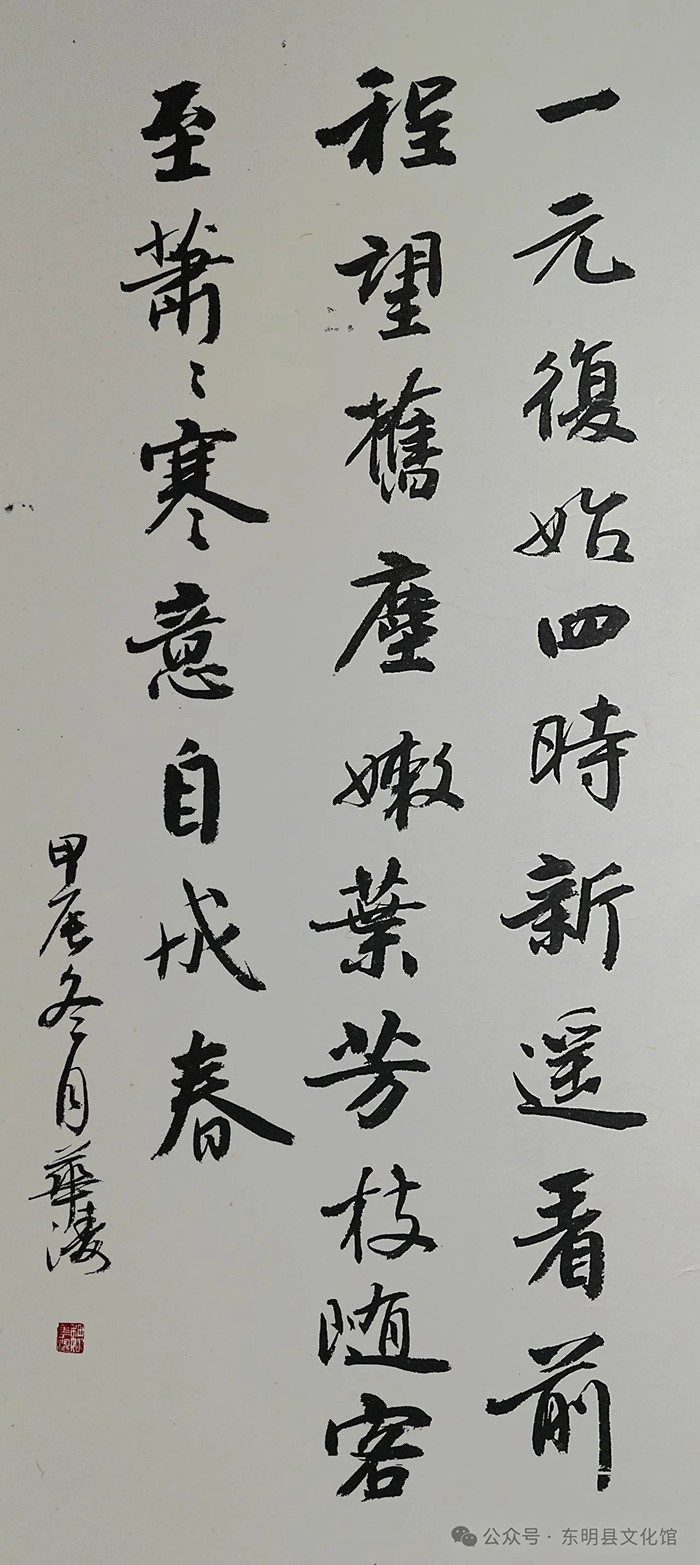 一元復始四時新遥看前
程望舊塵嫩葉芳枝随客
至蕭〻寒意自成春
甲辰冬月華濤
公众号·东明县文化馆